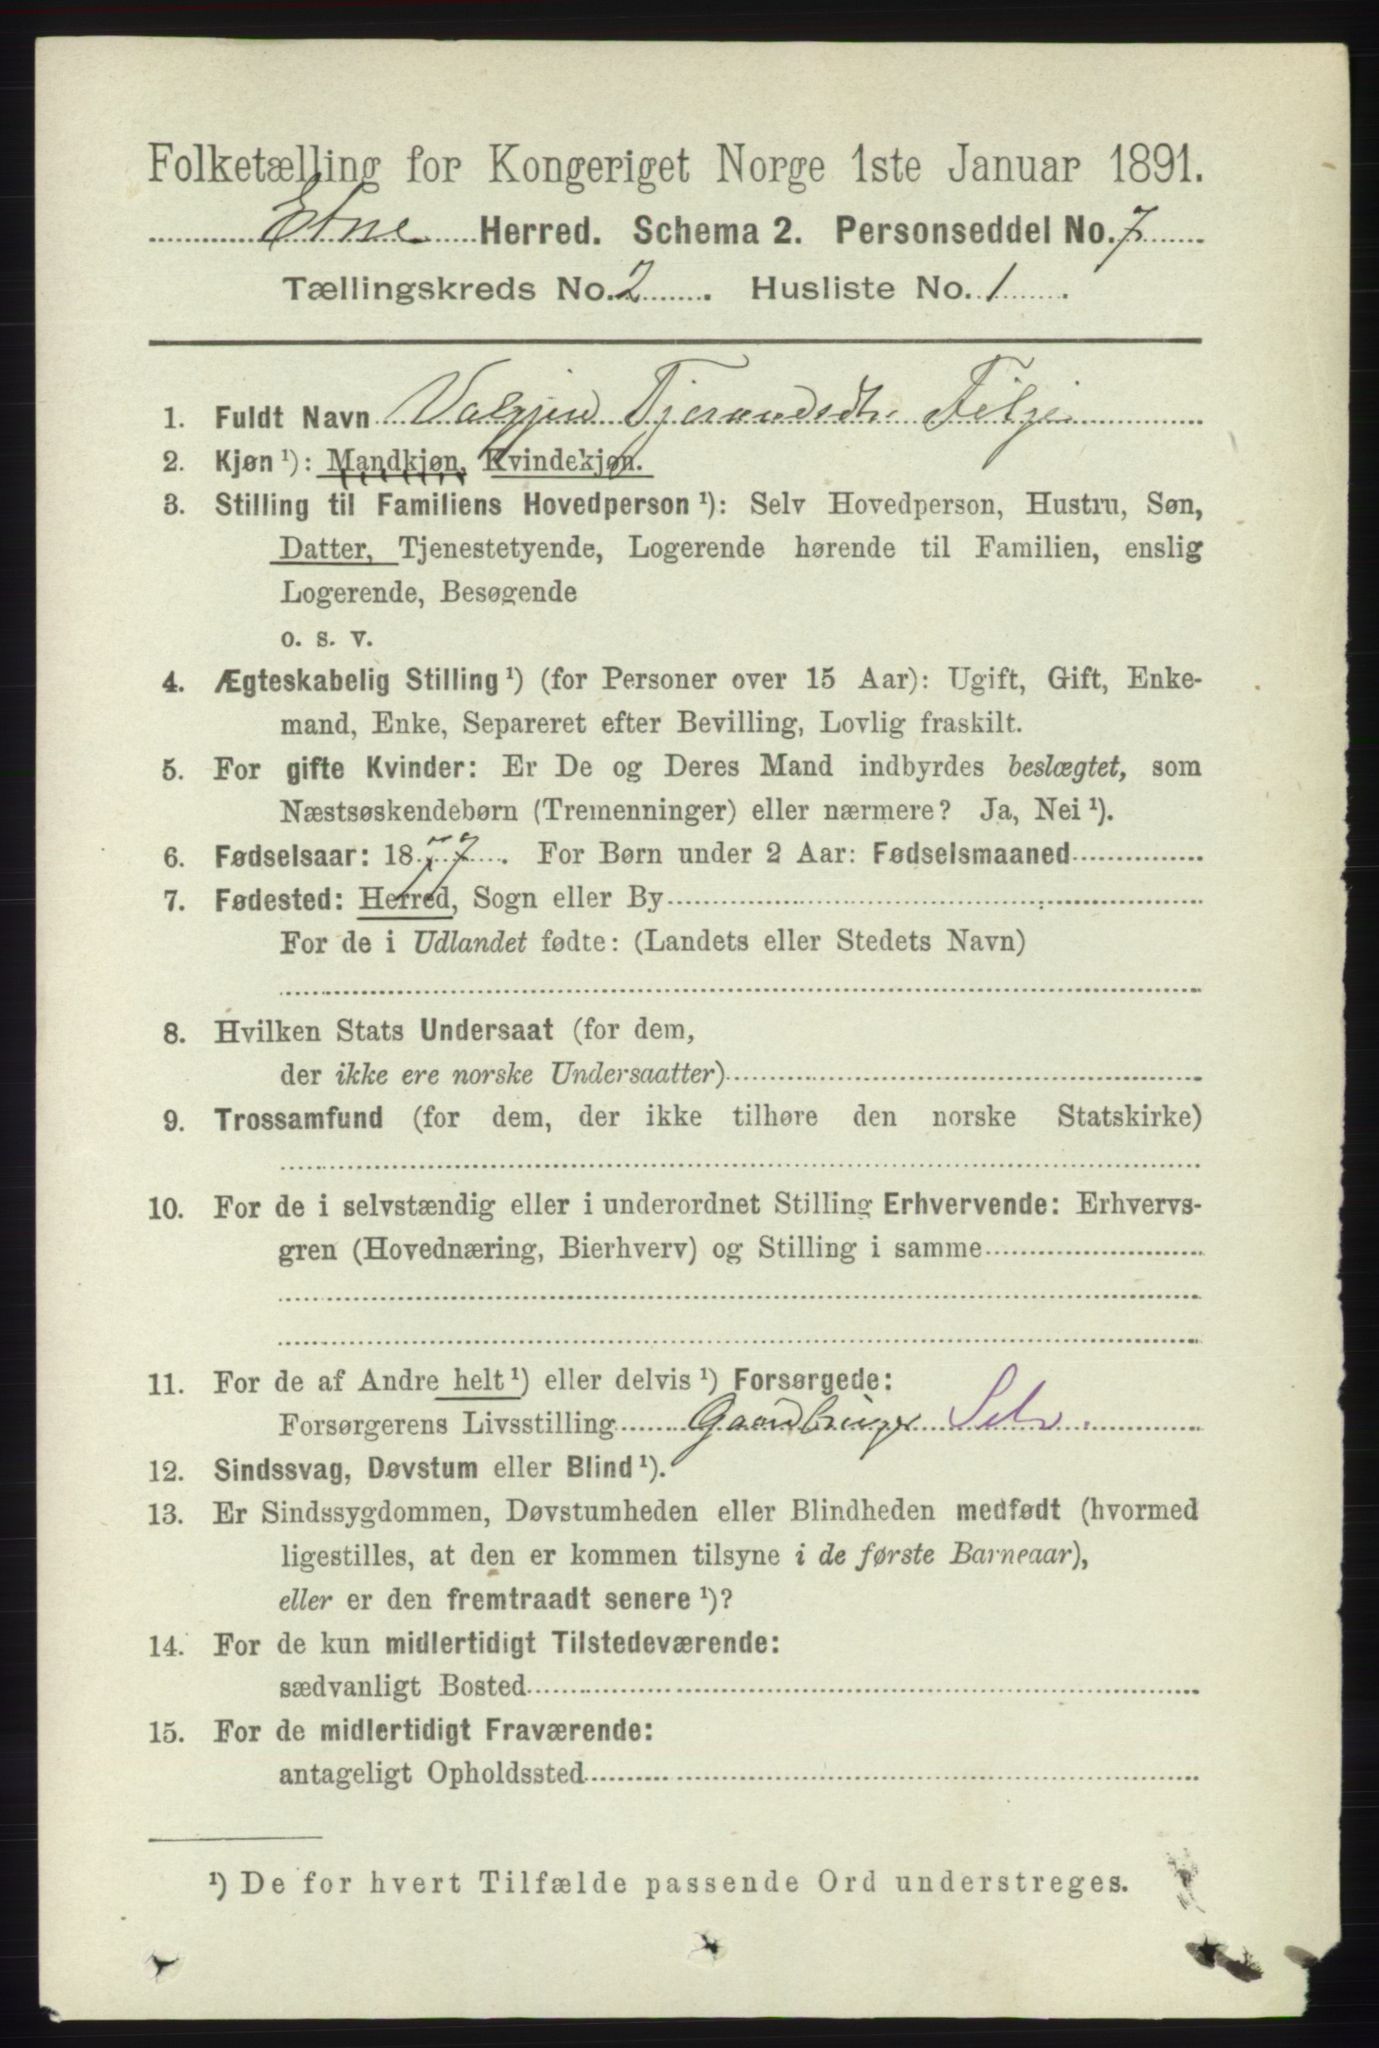 Folketælling for Kongeriget Norge 1ste Januar 1891.
Etne Herred. Schema 2. Personseddel No. 7
Tællingskreds No. 2. Husliste No. 1.
1. Fuldt Navn Valgjer Tjerandsdtr Filje
2. Kjøn¹): Mandkjøn, Kvindekjøn.
3. Stilling til Familiens Hovedperson¹): Selv Hovedperson, Hustru, Søn,
Datter, Tjenestetyende, Logerende hørende til Familien, enslig
Logerende, Besøgende
o. s. v.
4. Ægteskabelig Stilling¹) (for Personer over 15 Aar): Ugift, Gift, Enke-
mand, Enke, Separeret efter Bevilling, Lovlig fraskilt.
5. For gifte Kvinder: Er De og Deres Mand indbyrdes beslægtet, som
Næstsøskendebørn (Tremenninger) eller nærmere? Ja, Nei¹).
6. Fødselsaar: 1877. For Børn under 2 Aar: Fødselsmaaned
7. Fødested: Herred, Sogn eller By
For de i Udlandet fødte: (Landets eller Stedets Navn)
8. Hvilken Stats Undersaat (for dem,
der ikke ere norske Undersaatter)
9. Trossamfund (for dem, der ikke tilhøre den norske Statskirke)
10. For de i selvstændig eller i underordnet Stilling Erhvervende: Erhvervs-
gren (Hovednæring, Bierhverv) og Stilling i samme
11. For de af Andre helt¹) eller delvis¹) Forsørgede:
Forsørgerens Livsstilling Gaardbruger Selv.
12. Sindssvag, Døvstum eller Blind¹).
13. Er Sindssygdommen, Døvstumheden eller Blindheden medfødt (hvormed
ligestilles, at den er kommen tilsyne i de første Barneaar),
eller er den fremtraadt senere¹)?
14. For de kun midlertidigt Tilstedeværende:
sædvanligt Bosted
15. For de midlertidigt Fraværende:
antageligt Opholdssted
¹) De for hvert Tilfælde passende Ord understreges.